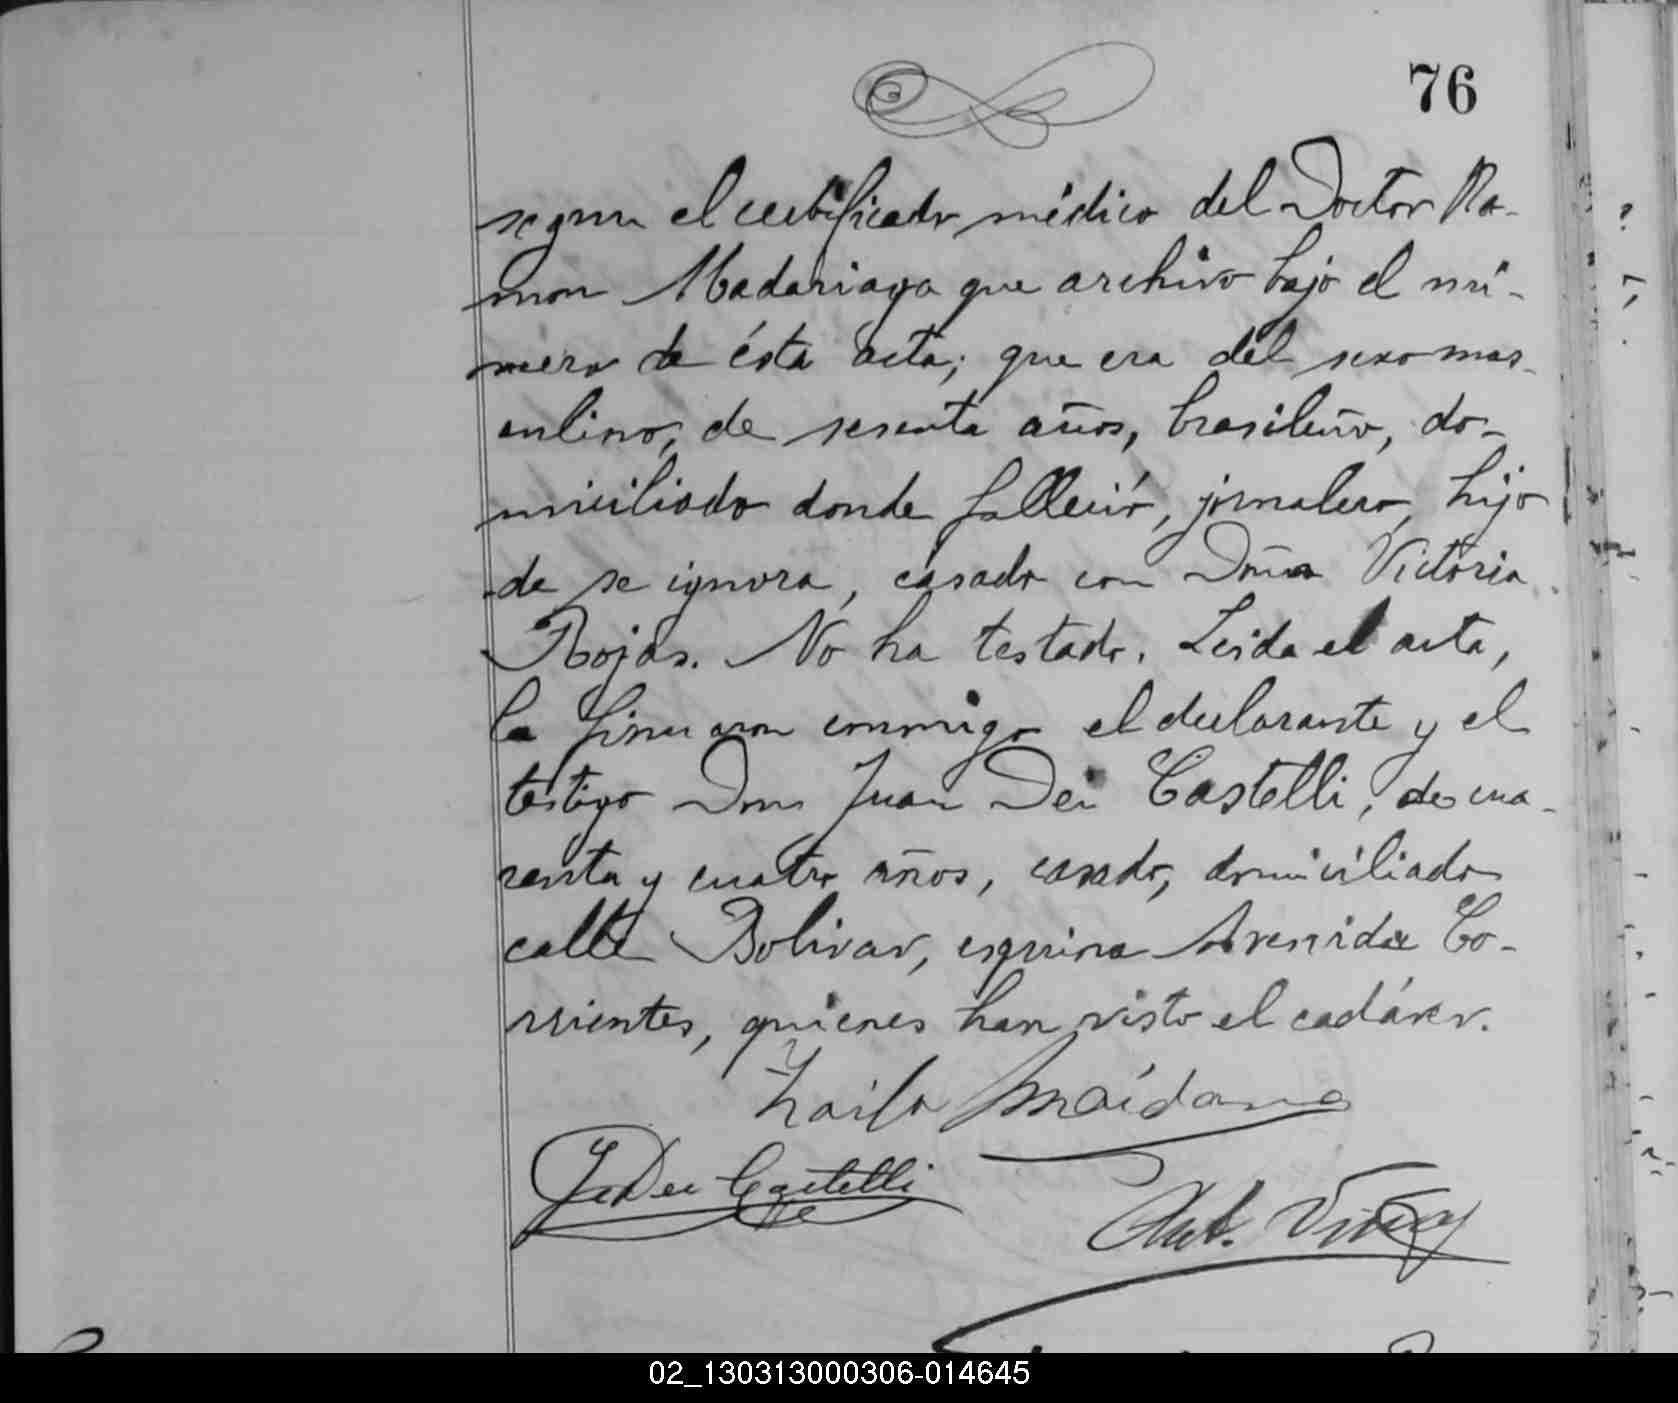 76
segun el certificado médico del Doctor Ra-
mon Madariaga que archivo bajo el nú-
mero de ésta acta; que era del sexo mas-
culino, de sesenta años, brasileño, do-
miciliado donde falleció, jornalero, hijo
de se ignora, casado con Doña Victoria
Rojas. No ha testado. Leida el acta,
la firmaron conmigo el declarante y el
testigo Don Juan Dei Castelli, de cua-
renta y cuatro años, casado, domiciliado
calle Bolivar, esquina Avenida Co-
rrientes, quienes han visto el cadáver.
Maídana
Dei Castelli
Ant.
02_130313000306-014645